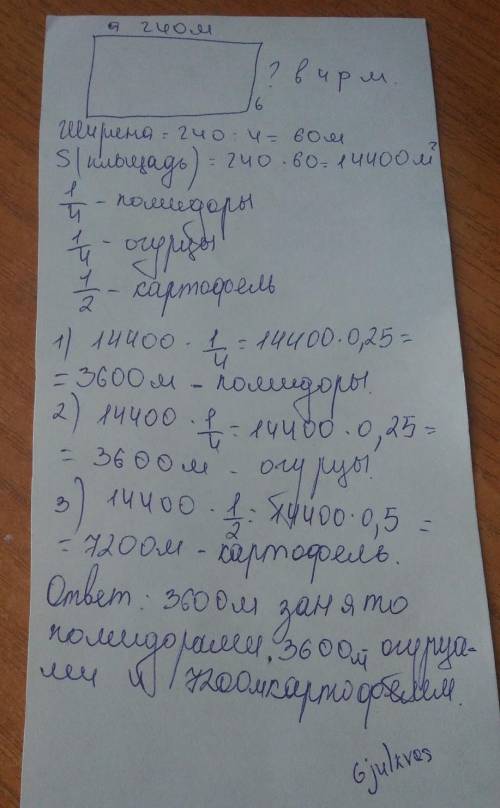 a 240м
? в 4 р м.
b
Ширина = 240 : 4 = 60м
S(площадь) = 240 · 60 = 14400м²
1/4 - помидоры
1/4 - огурцы
1/2 - картофель
1) 14400 · 1/4 = 14400 · 0,25 =
= 3600м - помидоры.
2) 14400 · 1/4 = 14400 · 0,25 =
= 3600м - огурцы.
3) 14400 · 1/2 = 14400 · 0,5 =
= 7200м - картофель.
Ответ: 3600м занято
помидорами, 3600м огурца-
ми и 7200м картофелем.